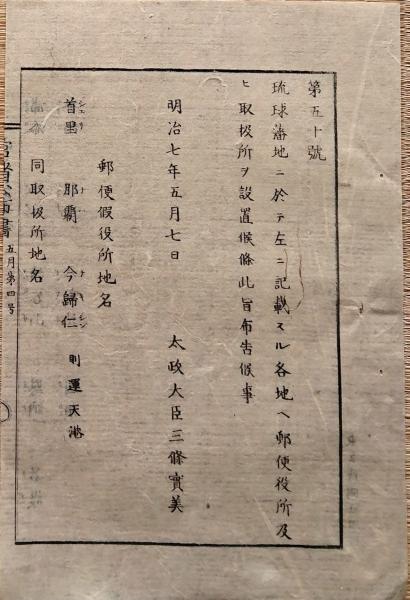 第五十號
琉球藩地ニ於テ左ニ記載スル各地ヘ郵便役所及
ヒ取扱所ヲ設置候條此旨布告候事
明治七年五月七日
太政大臣三條實美
郵便假役所地名
首里 那覇 今歸仁 則運天港
同取扱所地名
五月第四号